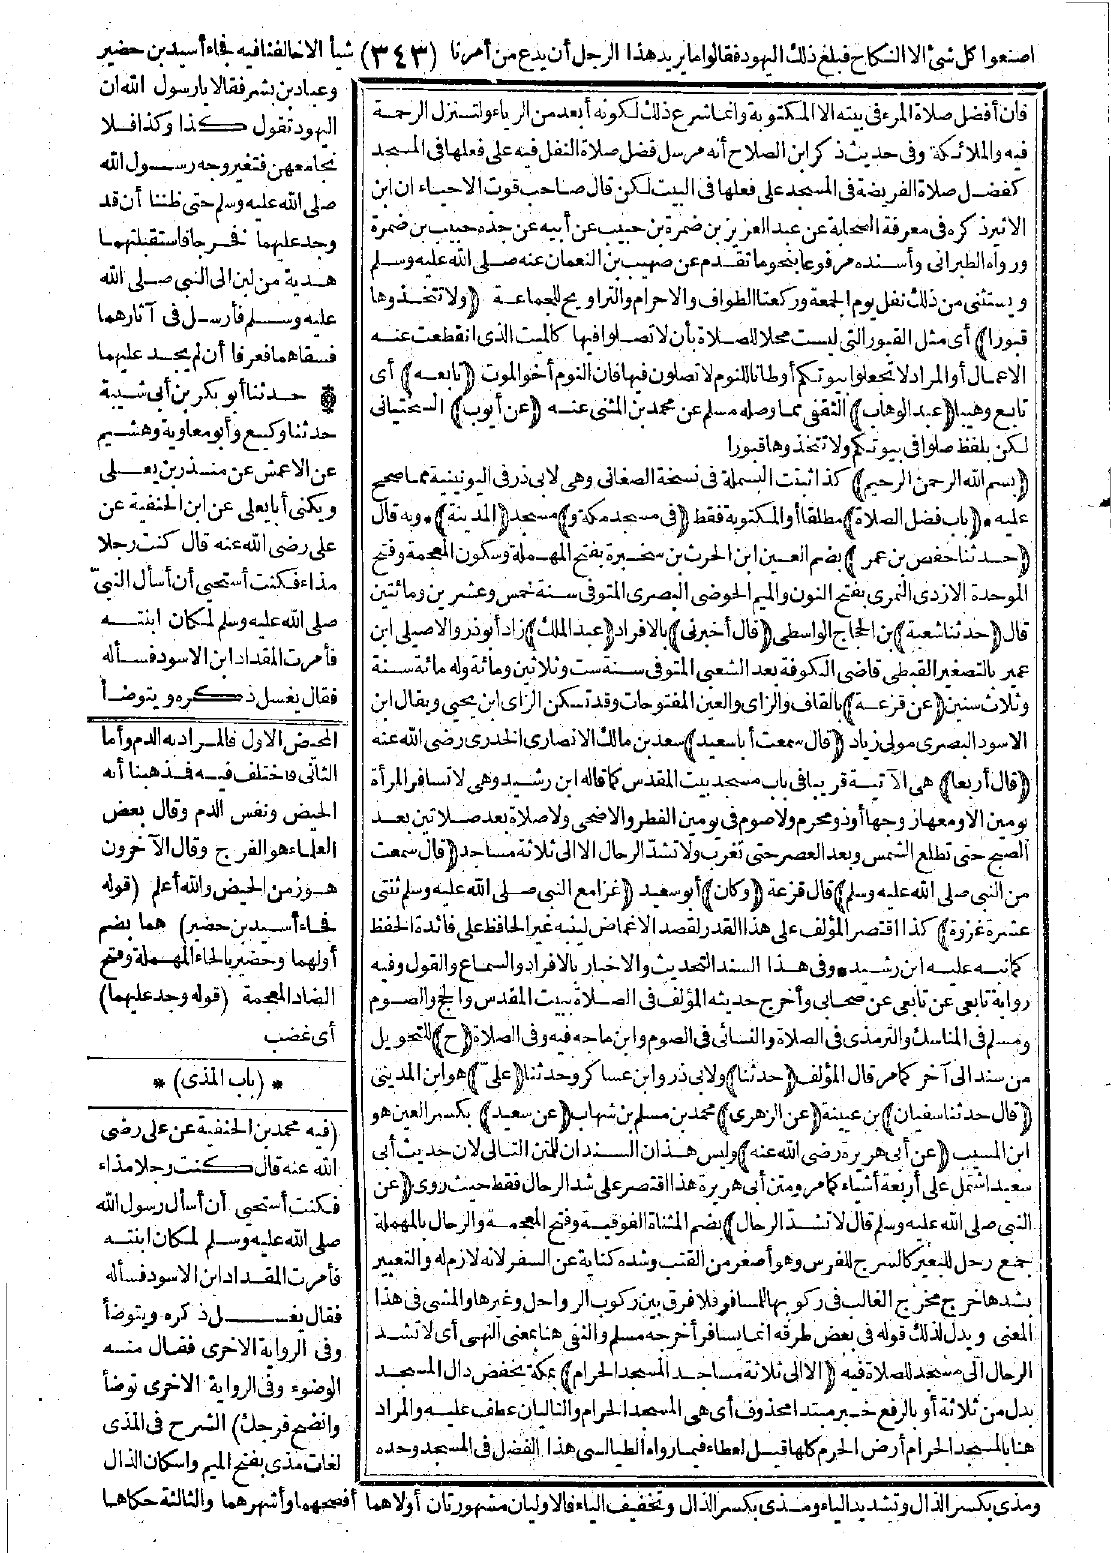 اصنعوا كل شئ الا النكاح فبلغ ذلك اليهود فقالوا ما يريد هذا الرجل أن يدع من أمرنا (٣٤٣) شيأ الا خالفنا فيه فجاء أسيد بن حضير
وعباد بن بشر فقالا يا رسول الله ان
اليهود تقول كذا وكذا فلا
نجامعهن فتغير وجه رسول الله
صلى الله عليه وسلم حتى ظننا أن قد
وجد عليهما فخرجا فاستقبلتهما
هدية من لبن الى النبي صلى الله
عليه وسلم فأرسل فى آثارهما
فسقاهما فعرفا أن لم يجد عليهما
حدثنا أبو بكر بن أبى شيبة
حدثنا وكيع وأبو معاوية وهشيم
عن الاعمش عن منذر بن يعلى
ويكنى أبا يعلى عن ابن الحنفية عن
على رضى الله عنه قال كنت رجلا
مذاء فكنت أستحيى أن أسأل النبىّ
صلى الله عليه وسلم لمكان ابنته
فأمرت المقداد ابن الاسود فسأله
فقال يغسل ذكره ويتوضأ
المحيض الاول فالمراد به الدم وأما
الثانى فاختلف فيه فذهبنا أنه
الحيض ونفس الدم وقال بعض
العلماء هو الفرج وقال الآخرون
هو زمن الحيض والله أعلم (قوله
فجاء أسيد بن حضير) هما بضم
أولهما وحضير بالحاء المهملة وفتح
الضاد المعجمة (قوله وجد عليهما)
أى غضب
* (باب المذى) *
(فيه محمد بن الحنفية عن على رضى
الله عنه قال كنت رجلا مذاء
فكنت أستحيى أن أسأل رسول الله
صلى الله عليه وسلم لمكان ابنته
فأمرت المقداد ابن الاسود فسأله
فقال يغسل ذكره ويتوضأ
وفى الرواية الاخرى فقال منه
الوضوء وفى الرواية الاخرى توضأ
وانضح فرجك) الشرح فى المذى
لغات مذى بفتح الميم واسكان الذال
فان أفضل صلاة المرء فى بيته الا المكتوبة وانما شرع ذلك لكونه أبعد من الرياء ولتنزل الرحمة
فيه والملائكة وفى حديث ذكر ابن الصلاح أنه مرسل فضل صلاة النفل فيه على فعلها فى المسجد
كفضل صلاة الفريضة فى المسجد على فعلها فى البيت لكن قال صاحب قوت الاحياء ان ابن
الاثير ذكره فى معرفة الصحابة عن عبد العزيز بن ضمرة بن حبيب عن أبيه عن جده حبيب بن ضمرة
ورواه الطبرانى وأسنده مرفوعا بنحو ما تقدم عن صهيب بن النعمان عنه صلى الله عليه وسلم
ويستثنى من ذلك نفل يوم الجمعة وركعتا الطواف والاحرام والتراويح للجماعة (ولا تتخذوها
قبورا) أى مثل القبور التى ليست محلا للصلاة بأن لا تصلوا فيها كالميت الذى انقطعت عنه
الاعمال أو المراد لا تجعلوا بيوتكم أوطانا للنوم لا تصلون فيها فان النوم أخو الموت (تابعه) أى
تابع وهيبا (عبد الوهاب) الثقفى مما وصله مسلم عن محمد بن المثنى عنه (عن أيوب) السختيانى
لكن بلفظ صلوا فى بيوتكم ولا تتخذوها قبورا
(بسم الله الرحمن الرحيم) كذا ثبتت البسملة فى نسخة الصغانى وهى لابى ذر فى اليونينية مما صحح
عليه * (باب فضل الصلاة) مطلقا أو المكتوبة فقط (فى مسجد مكة و) مسجد (المدينة) * وبه قال
(حدثنا حفص بن عمر) بضم العين ابن الحرث بن سخبرة بفتح المهملة وسكون المعجمة وفتح
الموحدة الازدى النمرى بفتح النون والميم الحوضى البصرى المتوفى سنة خمس وعشرين ومائتين
قال (حدثنا شعبة) بن الحجاج الواسطى (قال أخبرنى) بالافراد (عبد الملك) زاد أبو ذر والاصيلى ابن
عمير بالتصغير القبطى قاضى الكوفة بعد الشعبى المتوفى سنة ست وثلاثين ومائة وله مائة سنة
وثلاث سنين (عن قزعة) بالقاف والزاى والعين المفتوحات وقد تسكن الزاى ابن يحيى ويقال ابن
الاسود البصرى مولى زياد (قال سمعت أبا سعيد) سعد بن مالك الانصارى الخدرى رضى الله عنه
(قال أربعا) هى الآتية قريبا فى باب مسجد بيت المقدس كما قاله ابن رشيد وهى لا تسافر المرأة
يومين الا ومعها زوجها أو ذو محرم ولا صوم فى يومين الفطر والاضحى ولا صلاة بعد صلاتين بعد
الصبح حتى تطلع الشمس وبعد العصر حتى تغرب ولا تشد الرحال الا الى ثلاثة مساجد (قال سمعت
من النبى صلى الله عليه وسلم) قال قزعة (وكان) أبو سعيد (غزا مع النبى صلى الله عليه وسلم ثنتى
عشرة غزوة) كذا اقتصر المؤلف على هذا القدر لقصد الاغماض لينبه غير الحافظ على فائدة الحفظ
كما نبه عليه ابن رشيد * وفى هذا السند التحديث والاخبار بالافراد والسماع والقول وفيه
رواية تابعى عن تابعى عن صحابى وأخرج حديثه المؤلف فى الصلاة ببيت المقدس والحج والصوم
ومسلم فى المناسك والترمذى فى الصلاة والنسائى فى الصوم وابن ماجه فيه وفى الصلاة (ح) للتحويل
من سند الى آخر كما مر قال المؤلف (حدثنا) ولابى ذر وابن عساكر وحدثنا (علىّ) هو ابن المدينى
(قال حدثنا سفيان) بن عيينة (عن الزهرى) محمد بن مسلم بن شهاب (عن سعيد) بكسر العين هو
ابن المسيب (عن أبى هريرة رضى الله عنه) وليس هذان السندان للمتن التالى لان حديث أبى
سعيد اشتمل على أربعة أشياء كما مر ومتن أبى هريرة هذا اقتصر على شد الرحال فقط حيث روى (عن
النبى صلى الله عليه وسلم قال لا تشدّ الرحال) بضم المثناة الفوقية وفتح المعجمة والرحال بالمهملة
جمع رحل للبعير كالسرج للفرس وهو أصغر من القتب وشده كناية عن السفر لانه لازم له والتعبير
بشدها خرج مخرج الغالب فى ركوبها للمسافر فلا فرق بين ركوب الرواحل وغيرها والمشى فى هذا
المعنى ويدل لذلك قوله فى بعض طرقه انما يسافر أخرجه مسلم والنفى هنا بمعنى النهى أى لا تشد
الرحال الى مسجد للصلاة فيه (الا الى ثلاثة مساجد المسجد الحرام) بمكة بخفض دال المسجد
بدل من ثلاثة أو بالرفع خبر مبتدا محذوف أى هى المسجد الحرام والتاليان عطف عليه والمراد
هنا بالمسجد الحرام أرض الحرم كلها قيل لعطاء فيما رواه الطيالسى هذا الفضل فى المسجد وحده
ومذى بكسر الذال وتشديد الياء ومذى بكسر الذال وتخفيف الياء فالاوليان مشهورتان أولاهما أفصحهما وأشهرهما والثالثة حكاها